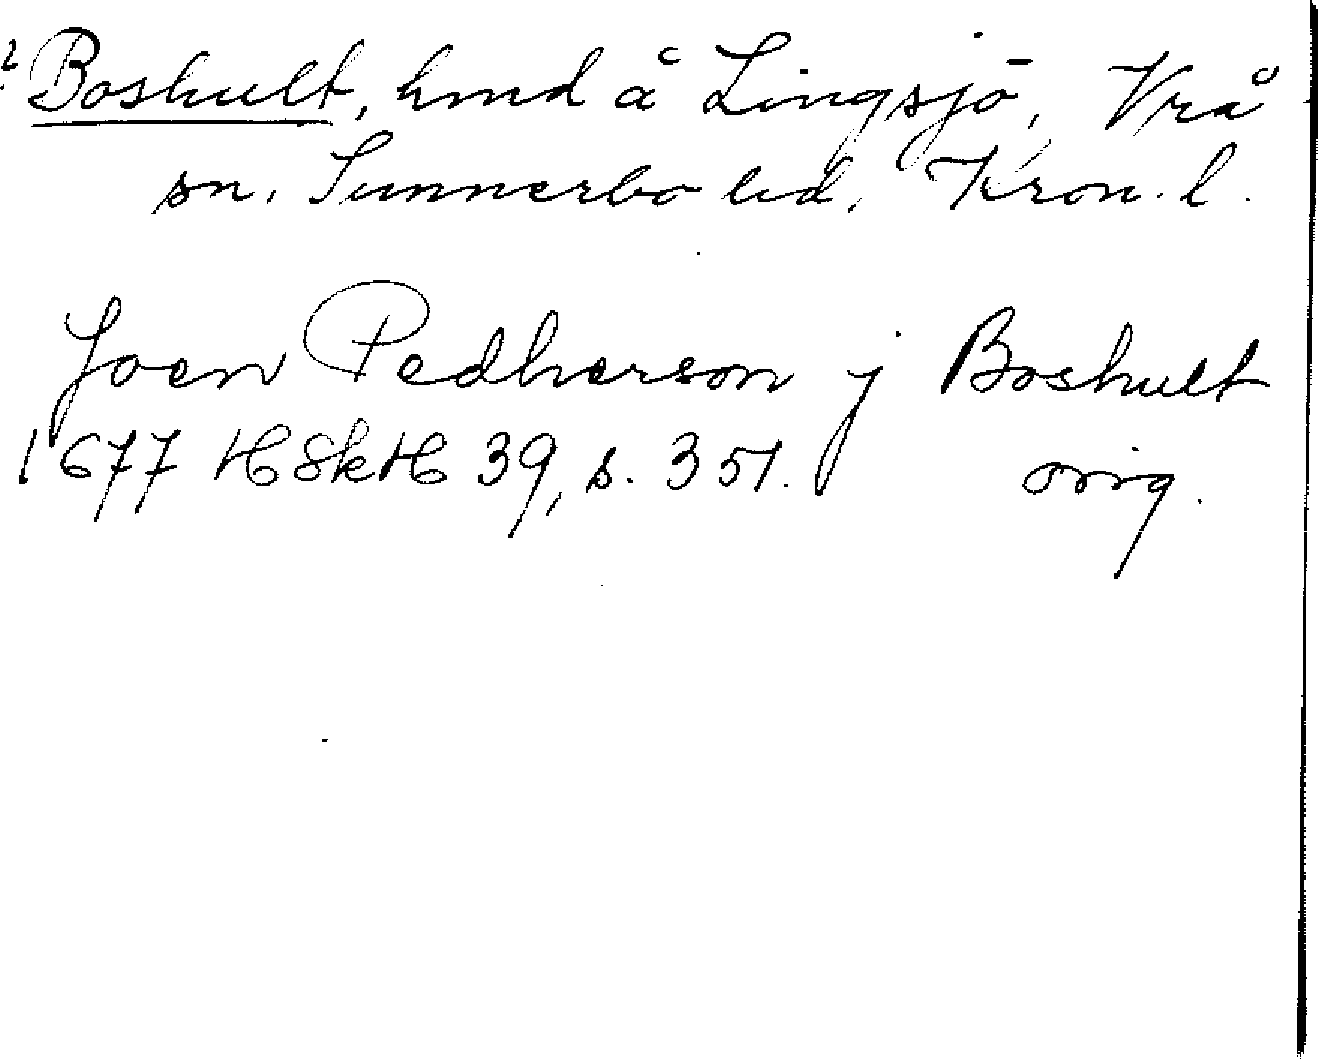 ? Boshult, hmd å Lingsjö, Vrå
sn. Sunnerbo hd, Kron. l.
Joen Pedherson j Boshult
1677 HSkH 39, s. 351. orig.